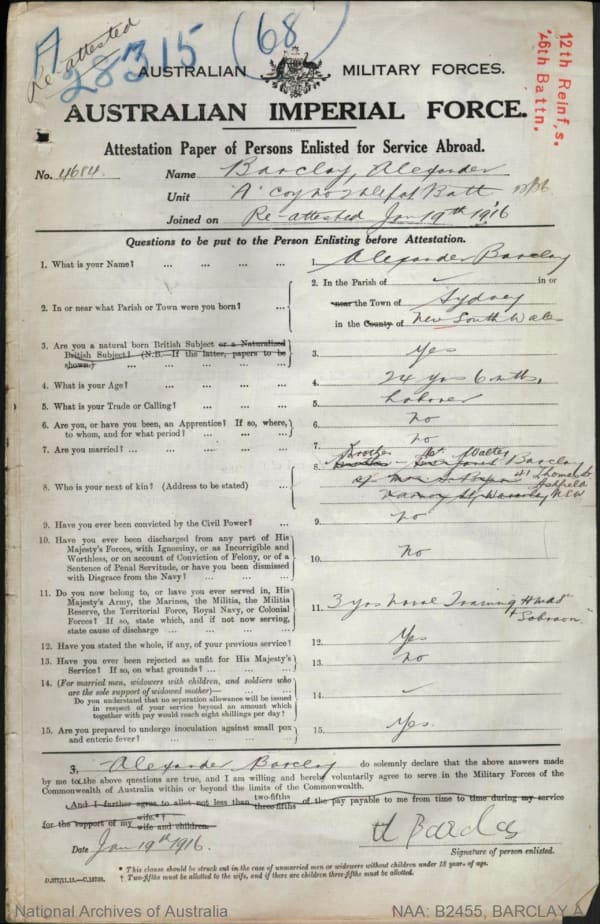 Re-attested
28315 (68)
AUSTRALIAN MILITARY FORCES.
AUSTRALIAN IMPERIAL FORCE.
12th Reinf,s.
26th Battn.
Attestation Paper of Persons Enlisted for Service Abroad.
No. 4684. Name Barclay, Alexander
Unit "A" Coy Batt
Joined on Re-attested Jan 19th 1916
Questions to be put to the Person Enlisting before Attestation.
1. What is your Name? ... ... ... ... 1. Alexander Barclay
2. In or near what Parish or Town were you born? ... 2. In the Parish of ✓ in or
near the Town of Sydney
in the County of New South Wales
3. Are you a natural born British Subject or a Naturalized
British Subject? (N.B.—If the latter, papers to be
shown.) ... ... ... ... 3. Yes
4. What is your Age? ... ... ... ... 4. 24 yrs 6 mths.
5. What is your Trade or Calling? ... ... ... 5. Labourer
6. Are you, or have you been, an Apprentice? If so, where,
to whom, and for what period? ... ... ... 6. No
7. Are you married? ... ... ... ... 7. No
8. Who is your next of kin? (Address to be stated) ... 8. Brother Mr. Walter Barclay
41 Thomas St
Ashfield
NSW
9. Have you ever been convicted by the Civil Power? ... 9. No
10. Have you ever been discharged from any part of His
Majesty's Forces, with Ignominy, or as Incorrigible and
Worthless, or on account of Conviction of Felony, or of a
Sentence of Penal Servitude, or have you been dismissed
with Disgrace from the Navy? ... ... ... 10. No
11. Do you now belong to, or have you ever served in, His
Majesty's Army, the Marines, the Militia, the Militia
Reserve, the Territorial Force, Royal Navy, or Colonial
Forces? If so, state which, and if not now serving,
state cause of discharge ... ... ... ... 11. 3 yrs Naval Training
"Sobraon"
12. Have you stated the whole, if any, of your previous service? 12. Yes
13. Have you ever been rejected as unfit for His Majesty's
Service? If so, on what grounds? ... ... ... 13. No
14. (For married men, widowers with children, and soldiers who
are the sole support of widowed mother)— ... ...
Do you understand that no separation allowance will be issued
in respect of your service beyond an amount which
together with pay would reach eight shillings per day? 14. ✓
15. Are you prepared to undergo inoculation against small pox
and enteric fever? ... ... ... ... 15. Yes.
I, Alexander Barclay do solemnly declare that the above answers made
by me to the above questions are true, and I am willing and hereby voluntarily agree to serve in the Military Forces of the
Commonwealth of Australia within or beyond the limits of the Commonwealth.
And I further agree to allot not less than two-fifths three-fifths of the pay payable to me from time to time during my service
for the support of my wife.*† wife and children.
Date Jan 19th 1916. A Barclay
Signature of person enlisted.
* This clause should be struck out in the case of unmarried men or widowers without children under 18 years of age.
† Two-fifths must be allotted to the wife, and if there are children three-fifths must be allotted.
National Archives of Australia NAA: B2455, BARCLAY A